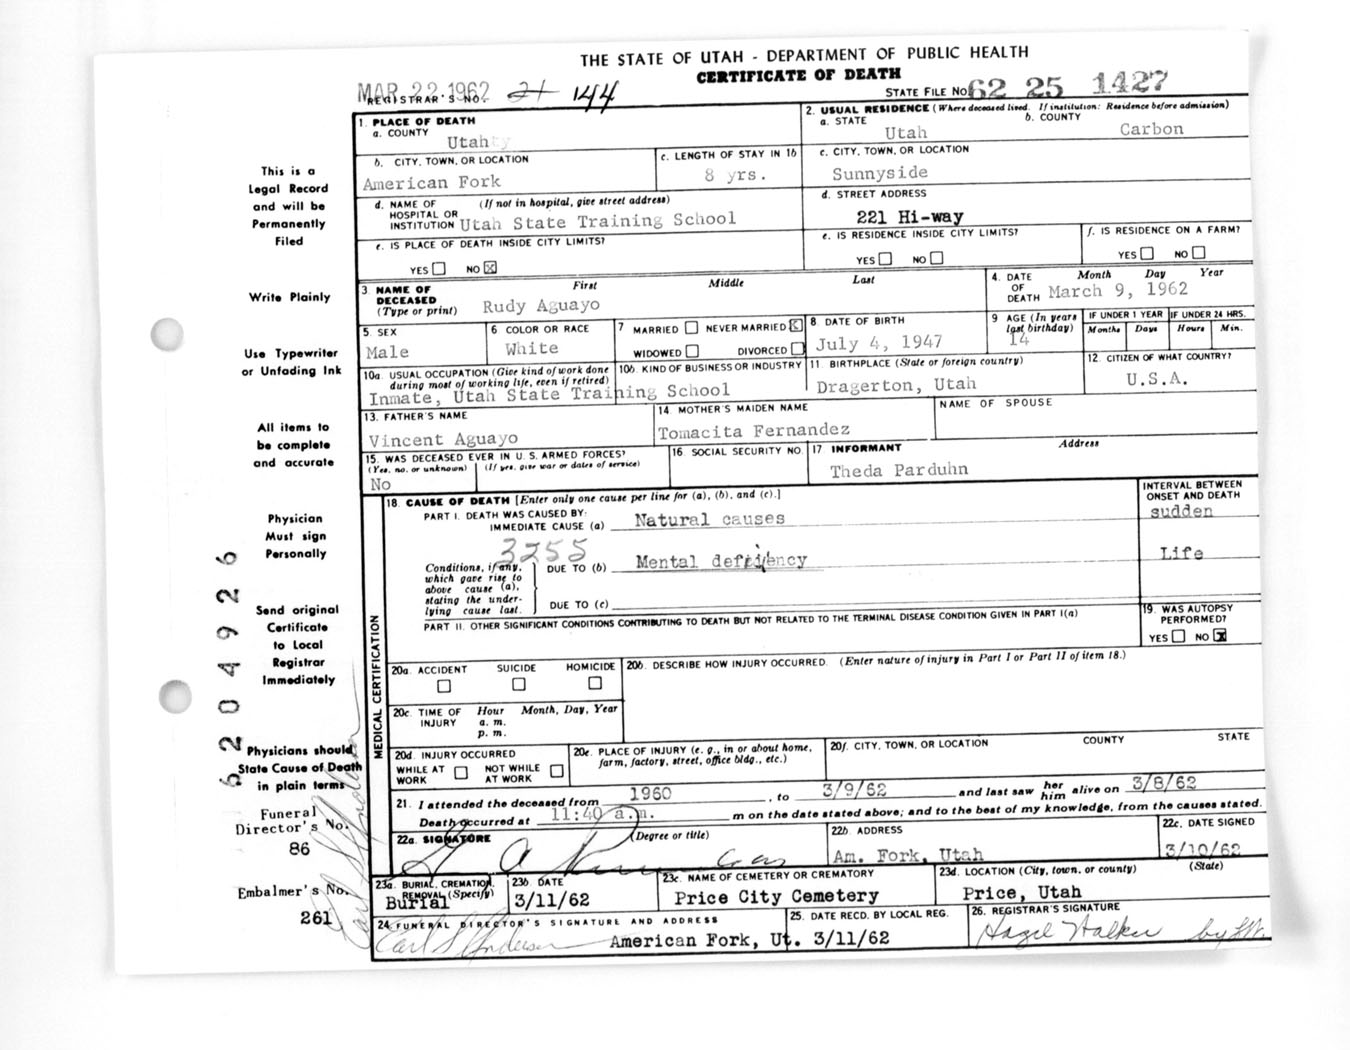 THE STATE OF UTAH - DEPARTMENT OF PUBLIC HEALTH
CERTIFICATE OF DEATH
MAR 22 1962
REGISTRAR'S NO. 21 144
STATE FILE NO. 62 25 1427
1. PLACE OF DEATH
a. COUNTY
Utah
2. USUAL RESIDENCE (Where deceased lived. If institution: Residence before admission)
a. STATE b. COUNTY
Utah Carbon
b. CITY, TOWN, OR LOCATION
American Fork
c. LENGTH OF STAY IN 1b
8 yrs.
c. CITY, TOWN, OR LOCATION
Sunnyside
d. NAME OF (If not in hospital, give street address)
HOSPITAL OR
INSTITUTION Utah State Training School
d. STREET ADDRESS
221 Hi-way
e. IS PLACE OF DEATH INSIDE CITY LIMITS?
YES NO X
e. IS RESIDENCE INSIDE CITY LIMITS?
YES NO
f. IS RESIDENCE ON A FARM?
YES NO
3. NAME OF DECEASED (Type or print)
First Middle Last
Rudy Aguayo
4. DATE OF DEATH
Month Day Year
March 9, 1962
5. SEX
Male
6 COLOR OR RACE
White
7 MARRIED NEVER MARRIED X
WIDOWED DIVORCED
8 DATE OF BIRTH
July 4, 1947
9 AGE (In years last birthday)
14
IF UNDER 1 YEAR
Months Days
IF UNDER 24 HRS.
Hours Min.
10a. USUAL OCCUPATION (Give kind of work done during most of working life, even if retired)
10b. KIND OF BUSINESS OR INDUSTRY
Inmate, Utah State Training School
11. BIRTHPLACE (State or foreign country)
Dragerton, Utah
12. CITIZEN OF WHAT COUNTRY?
U.S.A.
13. FATHER'S NAME
Vincent Aguayo
14. MOTHER'S MAIDEN NAME
Tomacita Fernandez
NAME OF SPOUSE
15. WAS DECEASED EVER IN U.S. ARMED FORCES?
(Yes, no, or unknown) (If yes, give war or dates of service)
No
16. SOCIAL SECURITY NO.
17 INFORMANT Address
Theda Parduhn
18. CAUSE OF DEATH [Enter only one cause per line for (a), (b), and (c).]
INTERVAL BETWEEN ONSET AND DEATH
PART I. DEATH WAS CAUSED BY:
IMMEDIATE CAUSE (a) Natural causes sudden
3255
Conditions, if any, which gave rise to above cause (a), stating the underlying cause last.
DUE TO (b) Mental deficiency Life
DUE TO (c)
PART II. OTHER SIGNIFICANT CONDITIONS CONTRIBUTING TO DEATH BUT NOT RELATED TO THE TERMINAL DISEASE CONDITION GIVEN IN PART I(a)
19. WAS AUTOPSY PERFORMED?
YES NO X
20a. ACCIDENT SUICIDE HOMICIDE
20b. DESCRIBE HOW INJURY OCCURRED. (Enter nature of injury in Part I or Part II of item 18.)
20c. TIME OF INJURY
Hour Month, Day, Year
a. m.
p. m.
20d. INJURY OCCURRED
WHILE AT WORK NOT WHILE AT WORK
20e. PLACE OF INJURY (e. g., in or about home, farm, factory, street, office bldg., etc.)
20f. CITY, TOWN, OR LOCATION COUNTY STATE
21. I attended the deceased from 1960, to 3/9/62 and last saw her him alive on 3/8/62
Death occurred at 11:40 a.m. m on the date stated above; and to the best of my knowledge, from the causes stated.
22a. SIGNATURE (Degree or title)
22b. ADDRESS
Am. Fork, Utah
22c. DATE SIGNED
3/10/62
23a. BURIAL, CREMATION, REMOVAL (Specify)
Burial
23b. DATE
3/11/62
23c. NAME OF CEMETERY OR CREMATORY
Price City Cemetery
23d. LOCATION (City, town, or county) (State)
Price, Utah
24. FUNERAL DIRECTOR'S SIGNATURE AND ADDRESS
Earl S Anderson American Fork, Ut.
25. DATE RECD. BY LOCAL REG.
3/11/62
26. REGISTRAR'S SIGNATURE
Hazel Walker by
MEDICAL CERTIFICATION
This is a
Legal Record
and will be
Permanently
Filed
Write Plainly
Use Typewriter
or Unfading Ink
All items to
be complete
and accurate
Physician
Must sign
Personally
Send original
Certificate
to Local
Registrar
Immediately
Physicians should
State Cause of Death
in plain terms
Funeral
Director's No.
86
Embalmer's No.
261
Earl S Anderson
62 04926